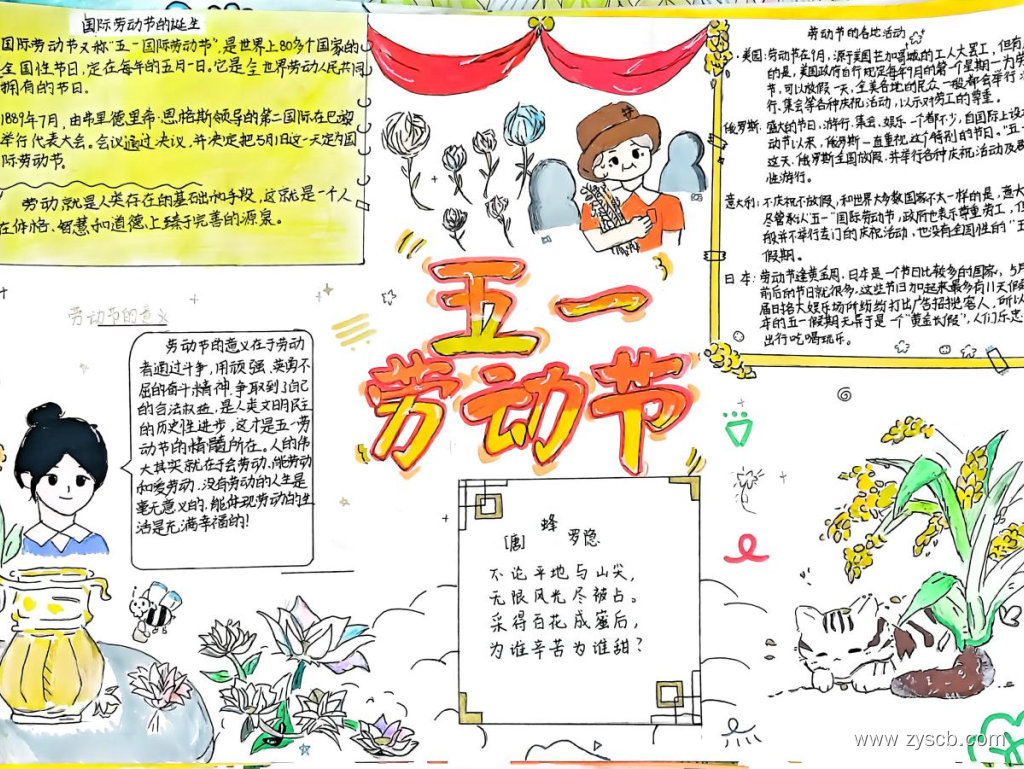 国际劳动节的诞生
国际劳动节又称"五一国际劳动节",是世界上80多个国家的
全国性节日,定在每年的五月一日。它是全世界劳动人民共同
拥有的节日。
1889年7月,由弗里德里希·恩格斯领导的第二国际在巴黎
举行代表大会。会议通过决议,并决定把5月1日这一天定为国
际劳动节。
劳动就是人类存在的基础和手段,这就是一个人
在体格、智慧和道德上臻于完善的源泉。
五一
劳动节
劳动节的各地活动
美国:劳动节在9月,源于美国芝加哥城的工人大罢工,但有
的是,美国政府自行规定每年9月的第一个星期一为劳
节,可以放假一天,全美各地的民众一般都会举行
行、集会等各种庆祝活动,以示对劳工的尊重。
俄罗斯:盛大的节日,游行、集会、娱乐一个都不少,自国际上设
动节以来,俄罗斯一直重视这个特别的节日。"五一
这天,俄罗斯全国放假,并举行各种庆祝活动及
性游行。
意大利:不庆祝不放假,和世界大多数国家不大一样的是,意大
尽管承认"五一"国际劳动节,政府也表示尊重劳工,但
般并不举行专门的庆祝活动,也没有全国性的"五
假期。
日本:劳动节逢黄金周,日本是一个节日比较多的国家,5月
前后的节日就很多,这些节日加起来最多有11天假
届日诸大娱乐场所纷纷打出广告招揽客人,所以
年的五一假期无异于是一个"黄金长假",人们乐忠
出行吃喝玩乐。
劳动节的意义
劳动节的意义在于劳动
者通过斗争,用顽强、英勇不
屈的奋斗精神,争取到了自己
的合法权益,是人类文明民主
的历史性进步,这才是五一劳
动节的精髓所在。人的伟
大其实就在于会劳动、能劳动
和爱劳动。没有劳动的人生是
毫无意义的,能体现劳动的生
活是充满幸福的!
蜂
[唐] 罗隐
不论平地与山尖,
无限风光尽被占。
采得百花成蜜后,
为谁辛苦为谁甜?
www.zyscb.com